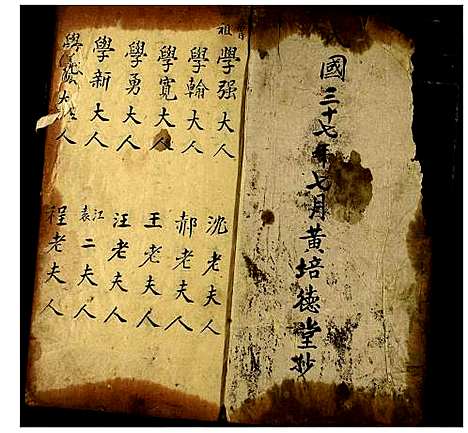 國三十七年七月黃培德堂抄
祖
學强大人
學翰大人
學寬大人
學勇大人
學新大人
學 大人
沈老夫人
郝老夫人
王老夫人
汪老夫人
江袁二夫人
程老夫人